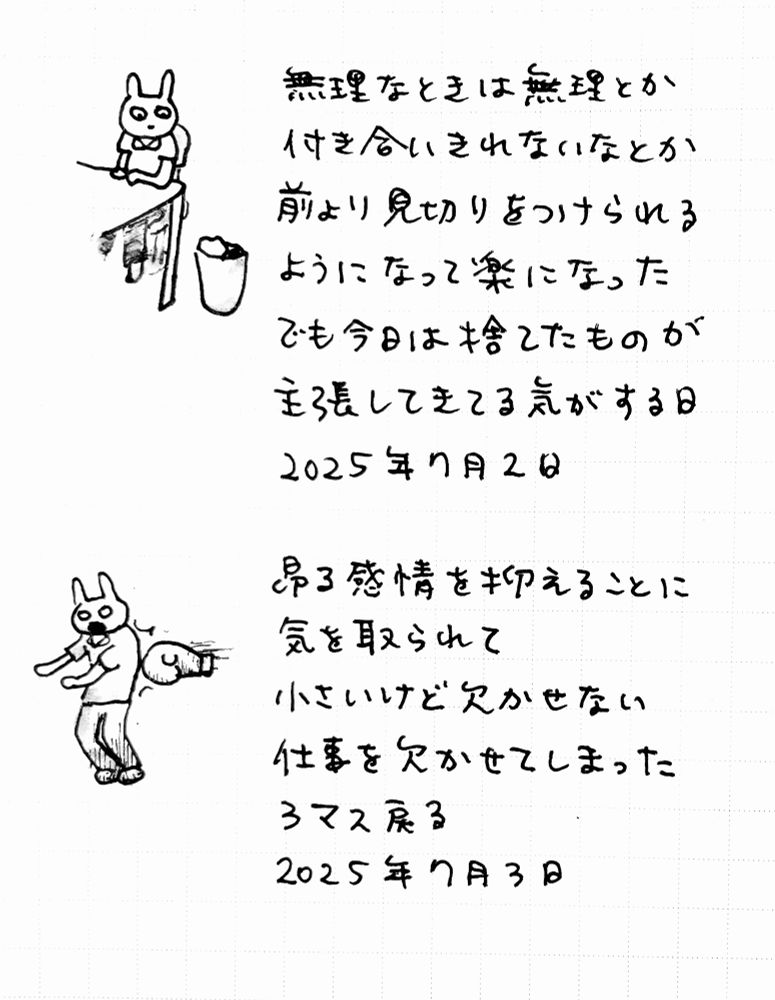 無理なときは無理とか
付き合いきれないなとか
前より見切りをつけられる
ようになって楽になった
でも今日は捨てたものが
主張してきてる気がする日
2025年7月2日
昂る感情を抑えることに
気を取られて
小さいけど欠かせない
仕事を欠かせてしまった
3マス戻る
2025年7月3日